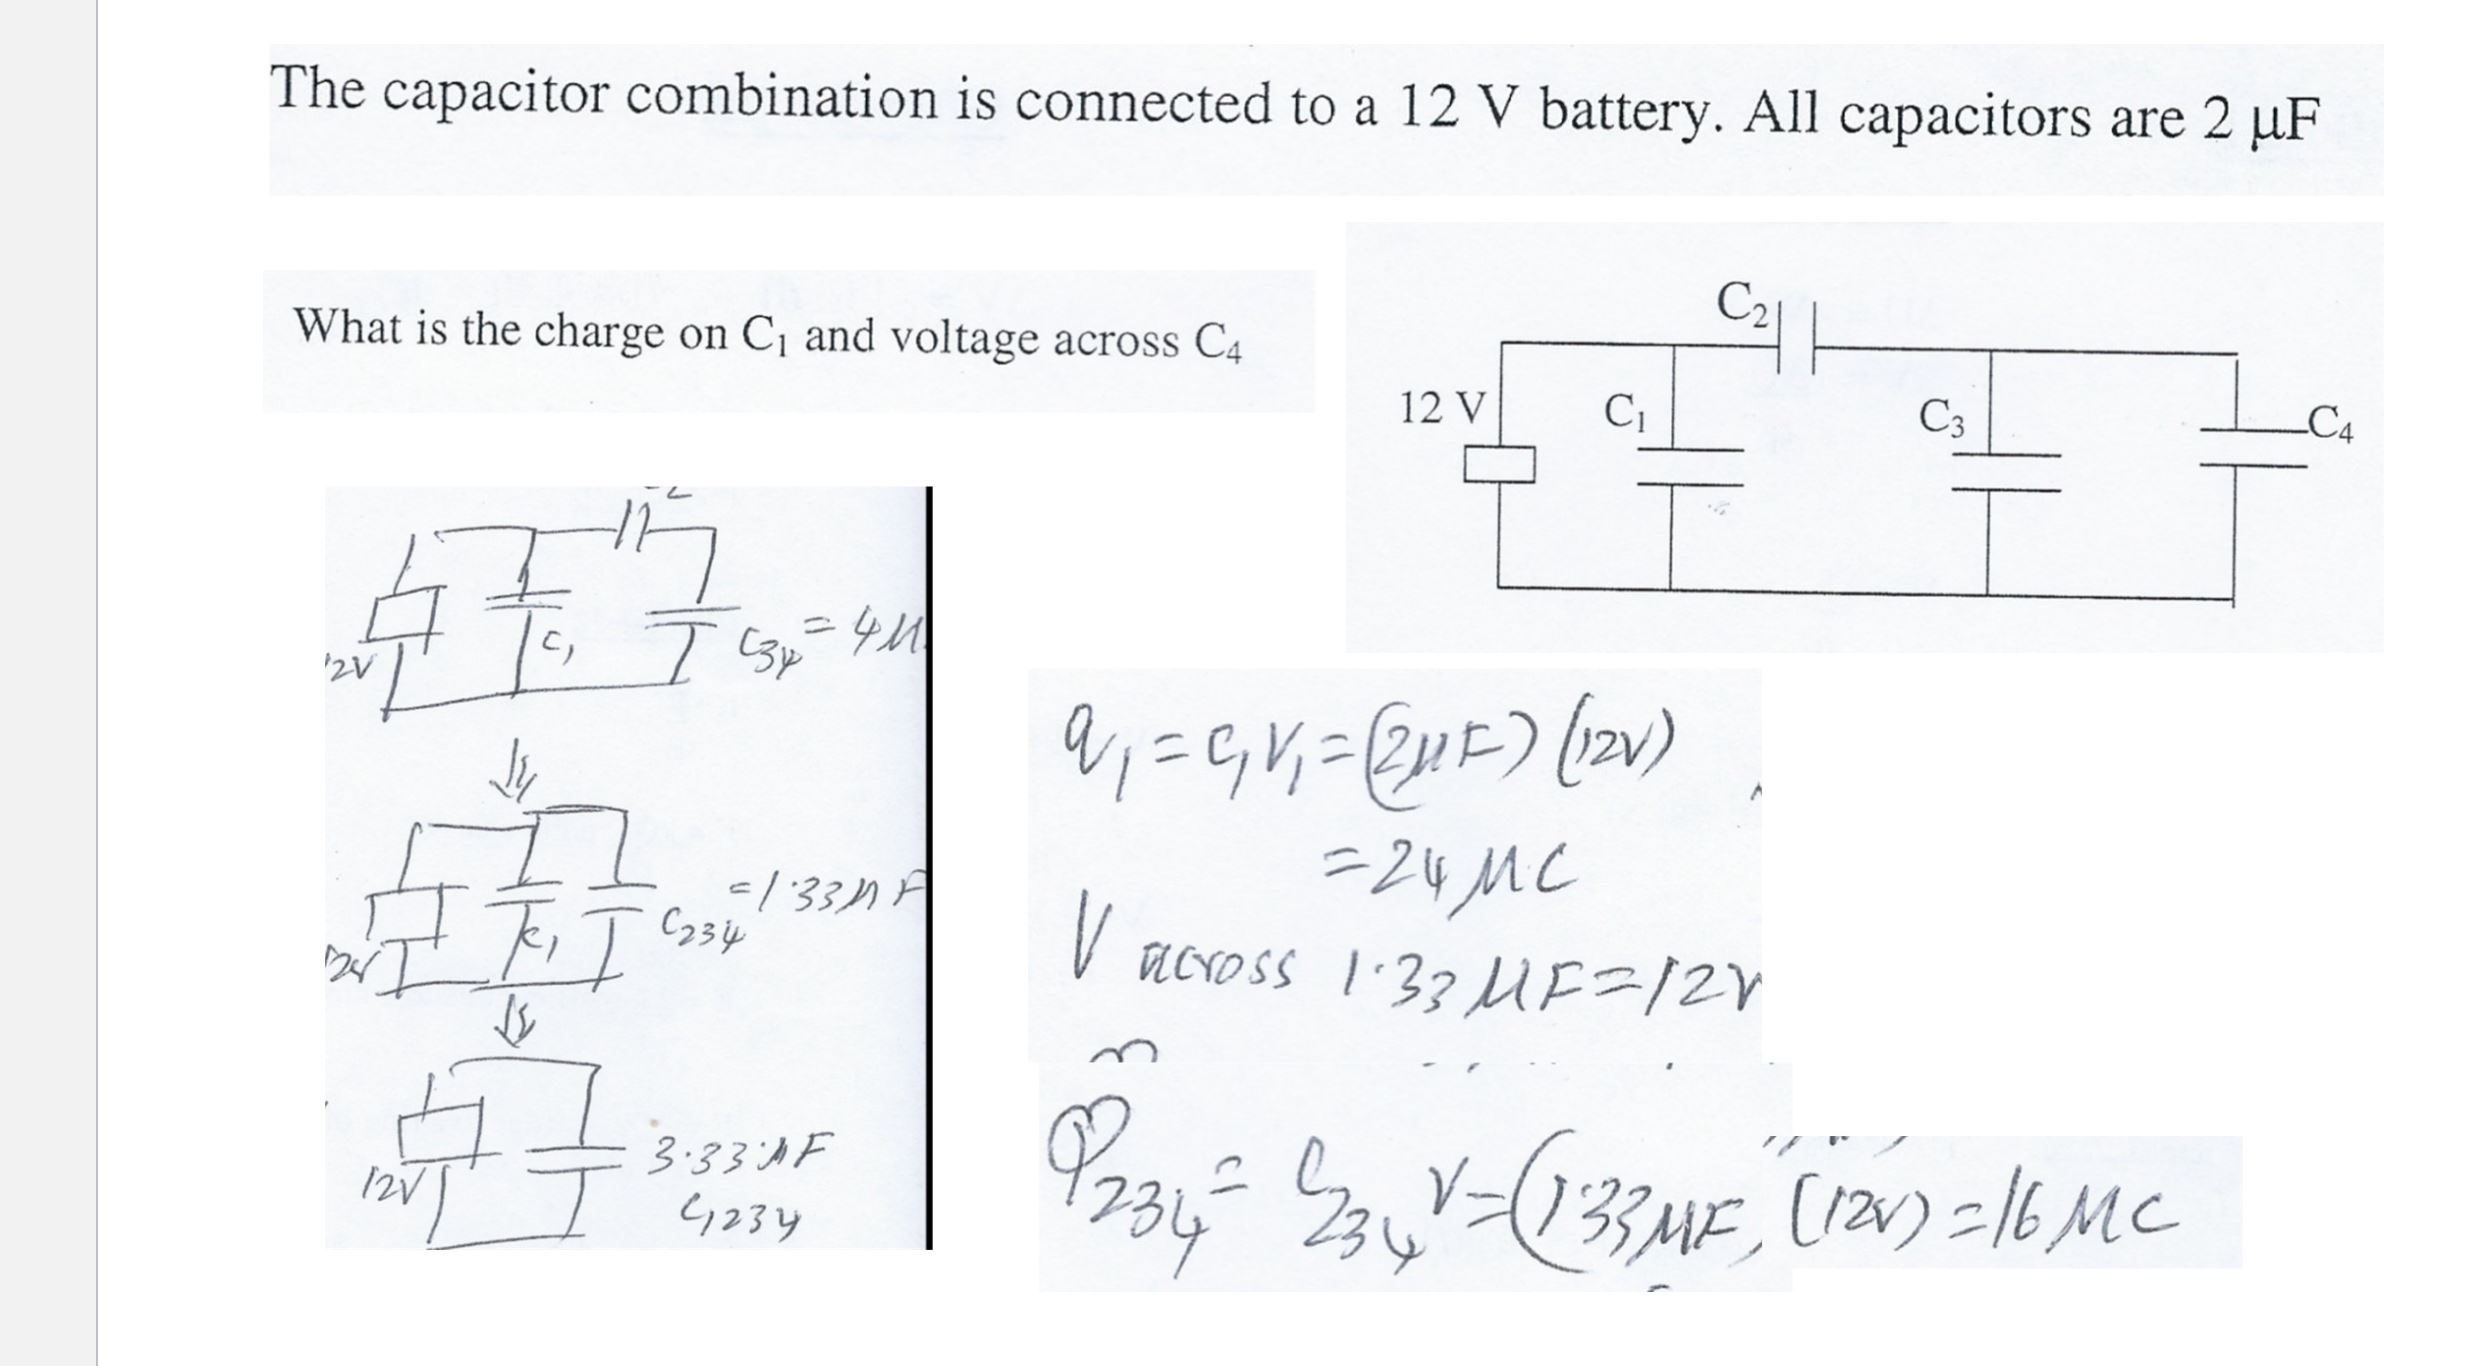 The capacitor combination is connected to a 12 V battery. All capacitors are 2 μF
What is the charge on C₁ and voltage across C₄
C₂
12 V
C₁
C₃
C₄
2V
C₁
C₃₄ = 4μ
12V
C₁
C₂₃₄ = 1.33μF
12V
3.33μF
C₁₂₃₄
q₁ = C₁V₁ = (2μF) (12V)
= 24 μC
V across 1.33 μF = 12V
q₂₃₄ = C₂₃₄ V = (1.33μF) (12V) = 16 μC